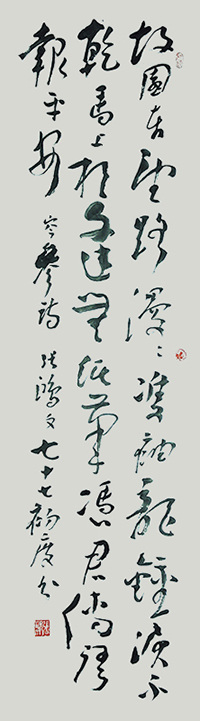 故園东望路漫〻雙袖龍鍾淚不
乾馬上相逢無紙筆憑君傳語
報平安 岑參詩 張鴻文七十七初度书